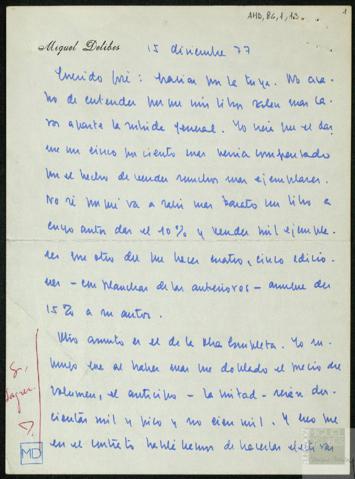 AMD, 86, 1, 13
1
Miguel Delibes
15 diciembre 77
Querido José: Gracias por la tuya. No aca-
bo de entender por qué mis libros salen más ca-
ros aparte la subida general. Yo creía que el dar
me un cinco por ciento más venía compensado
por el hecho de vender muchos más ejemplares.
No sé por qué va a salir más barato un libro a
cuyo autor dan el 10% y venden mil ejempla-
res que otro del que hacen cuatro, cinco edicio-
nes - con planchas de las anteriores - aunque den
15% a su autor.
Otro asunto es el de la Obra Completa. Yo su-
pongo que al haber más que doblado el precio de
volumen, el anticipo - la mitad - serán dos-
cientas mil y pico y no cien mil. Y creo que
en el contrato habíamos de hacerlas efectivas
MD